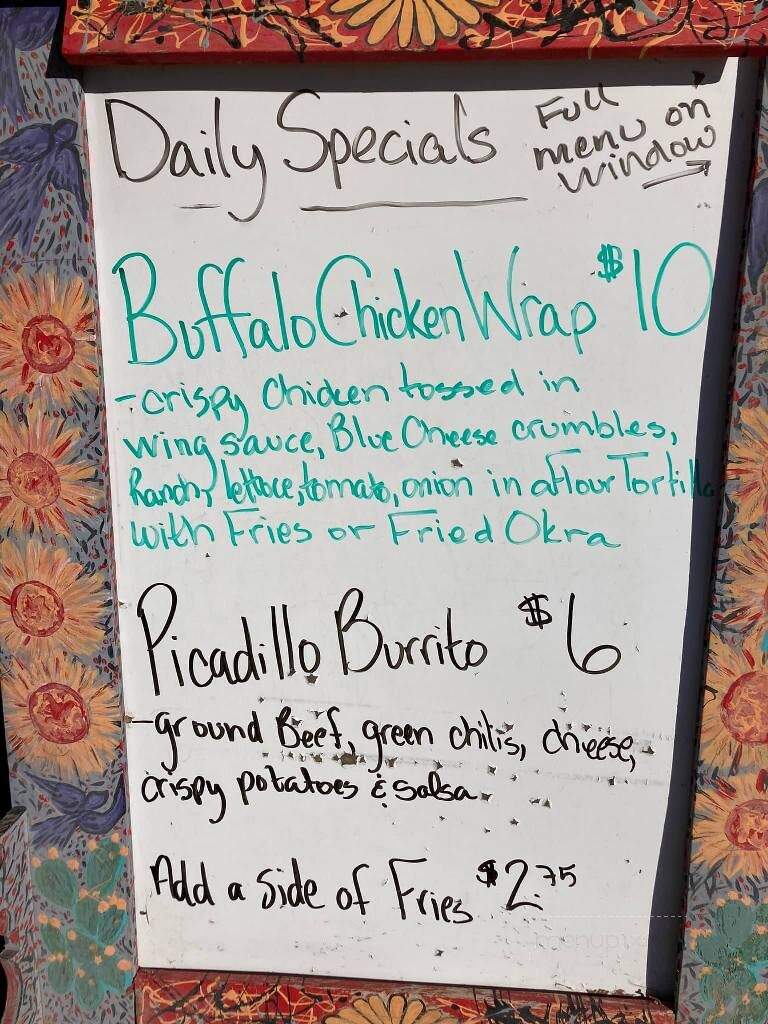 Daily Specials
Full
menu on
window
Buffalo Chicken Wrap $10
-crispy chicken tossed in
wing sauce, Blue Cheese crumbles,
Ranch, lettuce, tomato, onion in a flour Tortilla
with Fries or Fried Okra
Picadillo Burrito $6
-ground Beef, green chilis, cheese,
crispy potatoes & salsa
Add a side of Fries $2.75
menupix